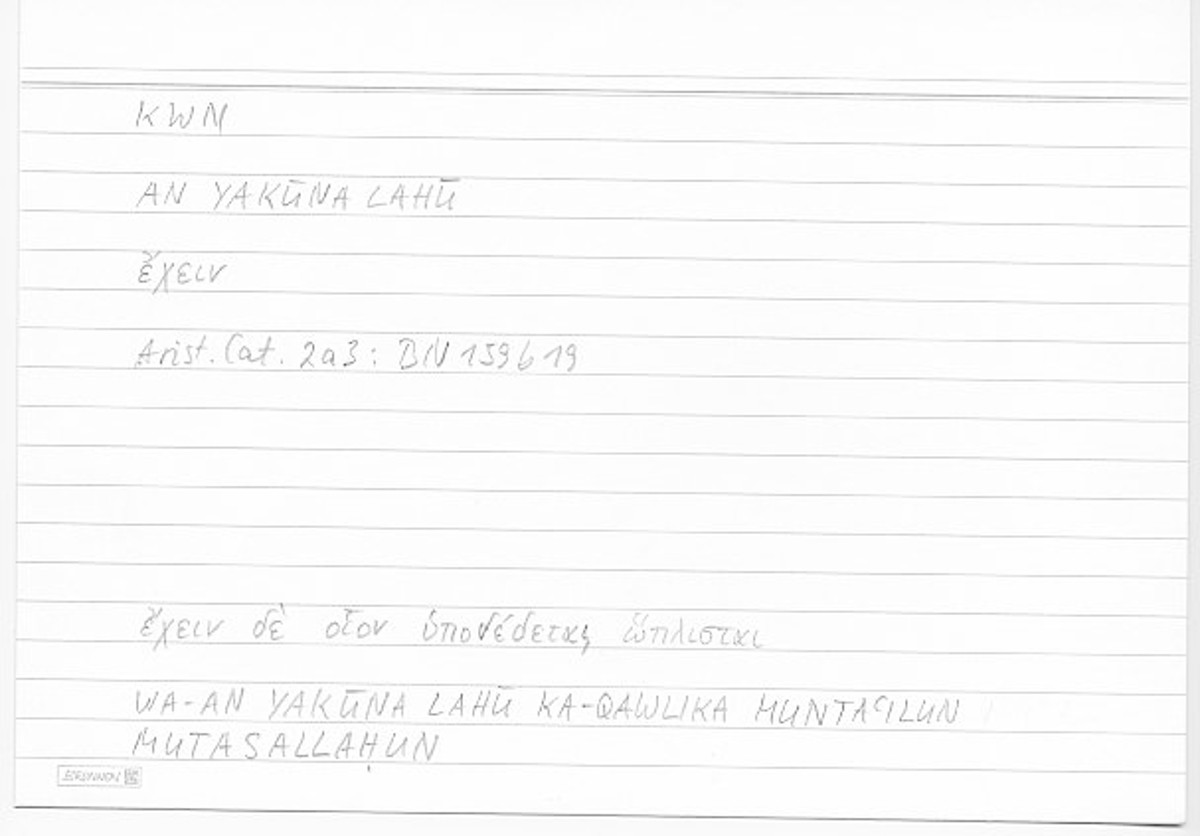 KWN
AN YAKŪNA LAHŪ
ἔχειν
Arist. Cat. 2a3: BN 159b19
ἔχειν δὲ οἷον ὑποδέδεται, ὥπλισται
WA-AN YAKŪNA LAHŪ KA-QAWLIKA MUNTAʕILUN
MUTASALLAḤUN